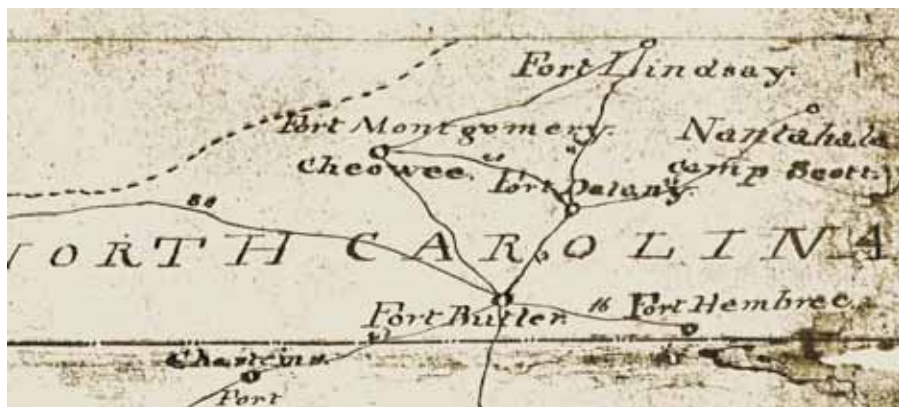 Fort Lindsay.
Fort Montgomery.
Nantahala
Cheowee.
Camp Scott.
Fort Delany.
80
NORTH CAROLINA
Fort Butler.
16
Fort Hembree.
Fort